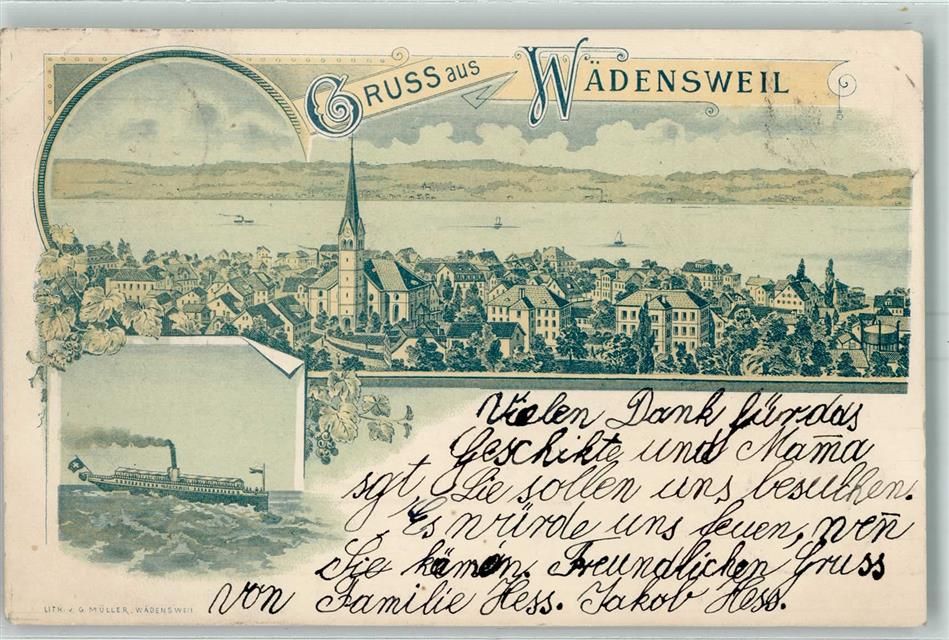 GRUSS aus WÄDENSWEIL
Vielen Dank für das
Geschikte und Mam̄a
sgt, Sie sollen uns besuchen.
Es würde uns feuen, wen̄
Sie kämen. Freundlichen Gruss
von Familie Hess. Jakob Hess.
LITH. v. G. MÜLLER, WÄDENSWEIL